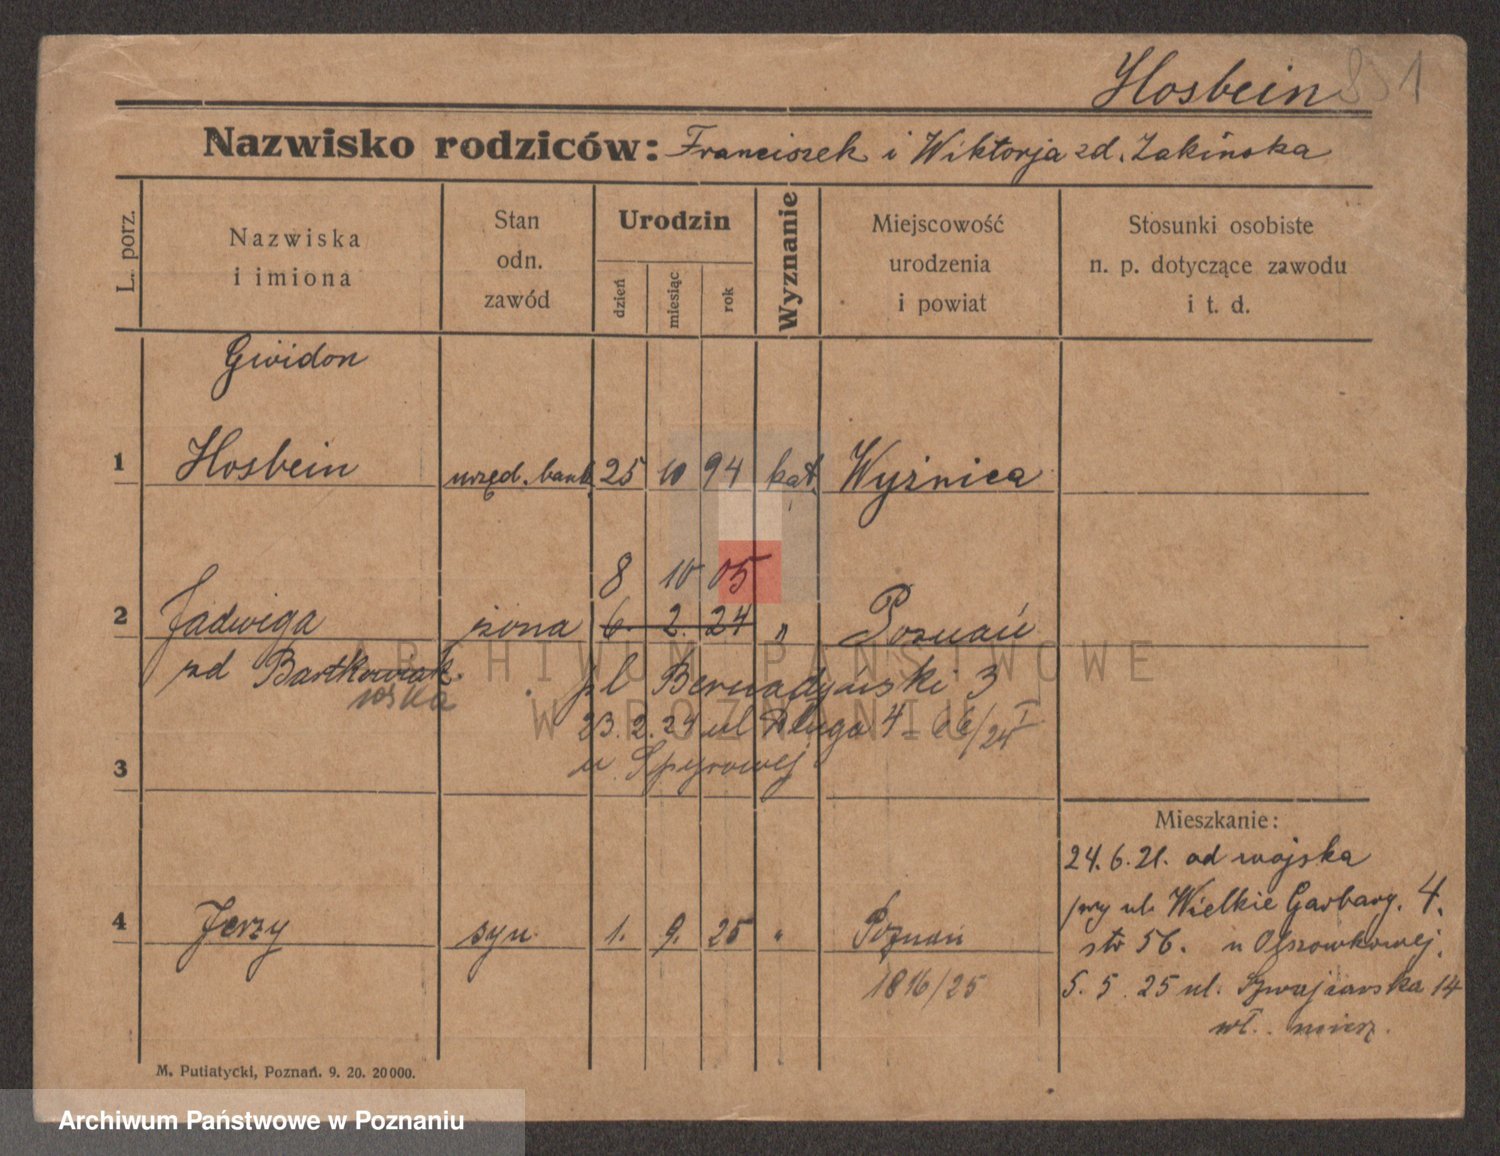 Hosbein 1
Nazwisko rodziców: Franciszek i Wiktorja zd. Żakińska
L. porz.
Nazwiska
i imiona
Stan
odn.
zawód
Urodzin
dzień
miesiąc
rok
Wyznanie
Miejscowość
urodzenia
i powiat
Stosunki osobiste
n. p. dotyczące zawodu
i t. d.
Gwidon
1 Hosbein urzęd. bank. 25 10 94 kat. Wyżnica
8 10 05
2 Jadwiga żona 6. 2. 24 " Poznań
zd Bartkowiak.
pl Bernadyński 3
23.2.24 ul Długa 4
u Spyrowej
3
Mieszkanie:
24.6.21. od wojska
przy ul. Wielkie Garbary. 4.
u Olszowkowej.
4 Jerzy syn 1. 9. 25 " Poznań
1816/25
5.5.25 ul. Szwajcarska 14
wł. miesz.
M. Putiatycki, Poznań. 9. 20. 20000.
ARCHIWUM PAŃSTWOWE
W POZNANIU
Archiwum Państwowe w Poznaniu